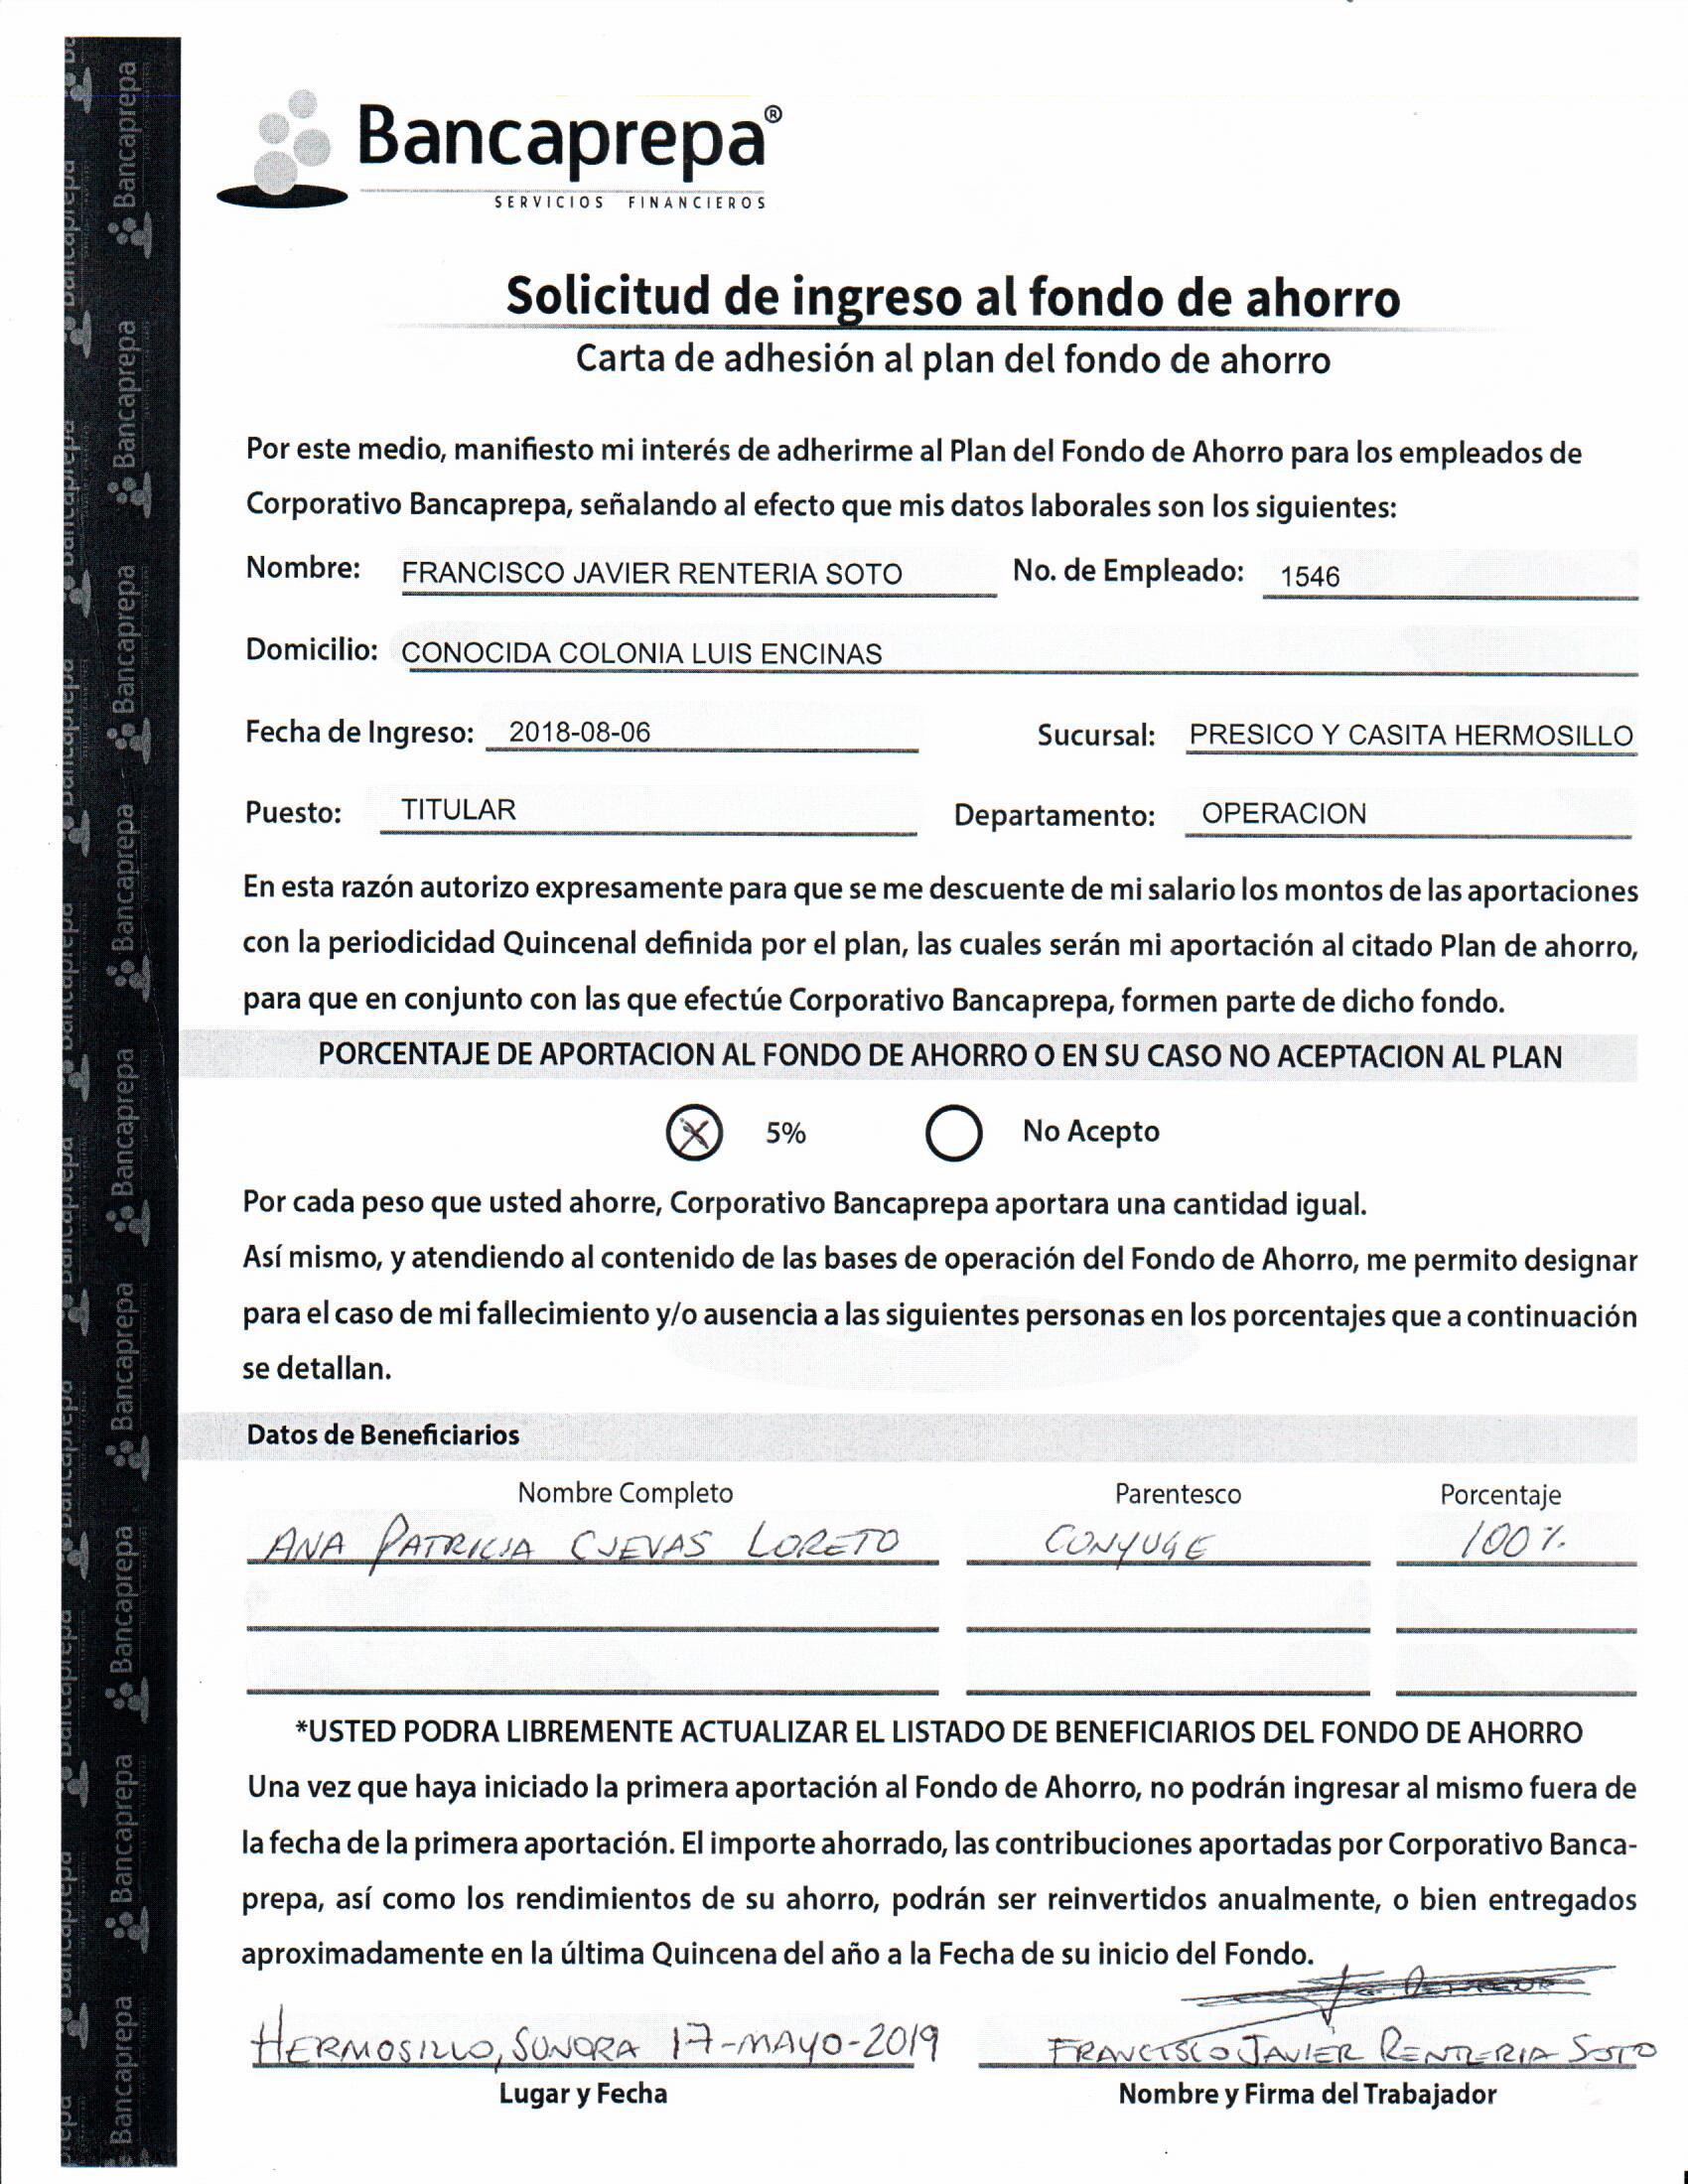 Bancaprepa®
SERVICIOS FINANCIEROS
Solicitud de ingreso al fondo de ahorro
Carta de adhesión al plan del fondo de ahorro
Por este medio, manifiesto mi interés de adherirme al Plan del Fondo de Ahorro para los empleados de
Corporativo Bancaprepa, señalando al efecto que mis datos laborales son los siguientes:
Nombre: FRANCISCO JAVIER RENTERIA SOTO No. de Empleado: 1546
Domicilio: CONOCIDA COLONIA LUIS ENCINAS
Fecha de Ingreso: 2018-08-06 Sucursal: PRESICO Y CASITA HERMOSILLO
Puesto: TITULAR Departamento: OPERACION
En esta razón autorizo expresamente para que se me descuente de mi salario los montos de las aportaciones
con la periodicidad Quincenal definida por el plan, las cuales serán mi aportación al citado Plan de ahorro,
para que en conjunto con las que efectúe Corporativo Bancaprepa, formen parte de dicho fondo.
PORCENTAJE DE APORTACION AL FONDO DE AHORRO O EN SU CASO NO ACEPTACION AL PLAN
X 5% No Acepto
Por cada peso que usted ahorre, Corporativo Bancaprepa aportara una cantidad igual.
Así mismo, y atendiendo al contenido de las bases de operación del Fondo de Ahorro, me permito designar
para el caso de mi fallecimiento y/o ausencia a las siguientes personas en los porcentajes que a continuación
se detallan.
Datos de Beneficiarios
Nombre Completo Parentesco Porcentaje
ANA PATRICIA CUEVAS LORETO CONYUGE 100%
*USTED PODRA LIBREMENTE ACTUALIZAR EL LISTADO DE BENEFICIARIOS DEL FONDO DE AHORRO
Una vez que haya iniciado la primera aportación al Fondo de Ahorro, no podrán ingresar al mismo fuera de
la fecha de la primera aportación. El importe ahorrado, las contribuciones aportadas por Corporativo Banca-
prepa, así como los rendimientos de su ahorro, podrán ser reinvertidos anualmente, o bien entregados
aproximadamente en la última Quincena del año a la Fecha de su inicio del Fondo.
HERMOSILLO, SONORA 17-MAYO-2019 FRANCISCO JAVIER RENTERIA SOTO
Lugar y Fecha Nombre y Firma del Trabajador